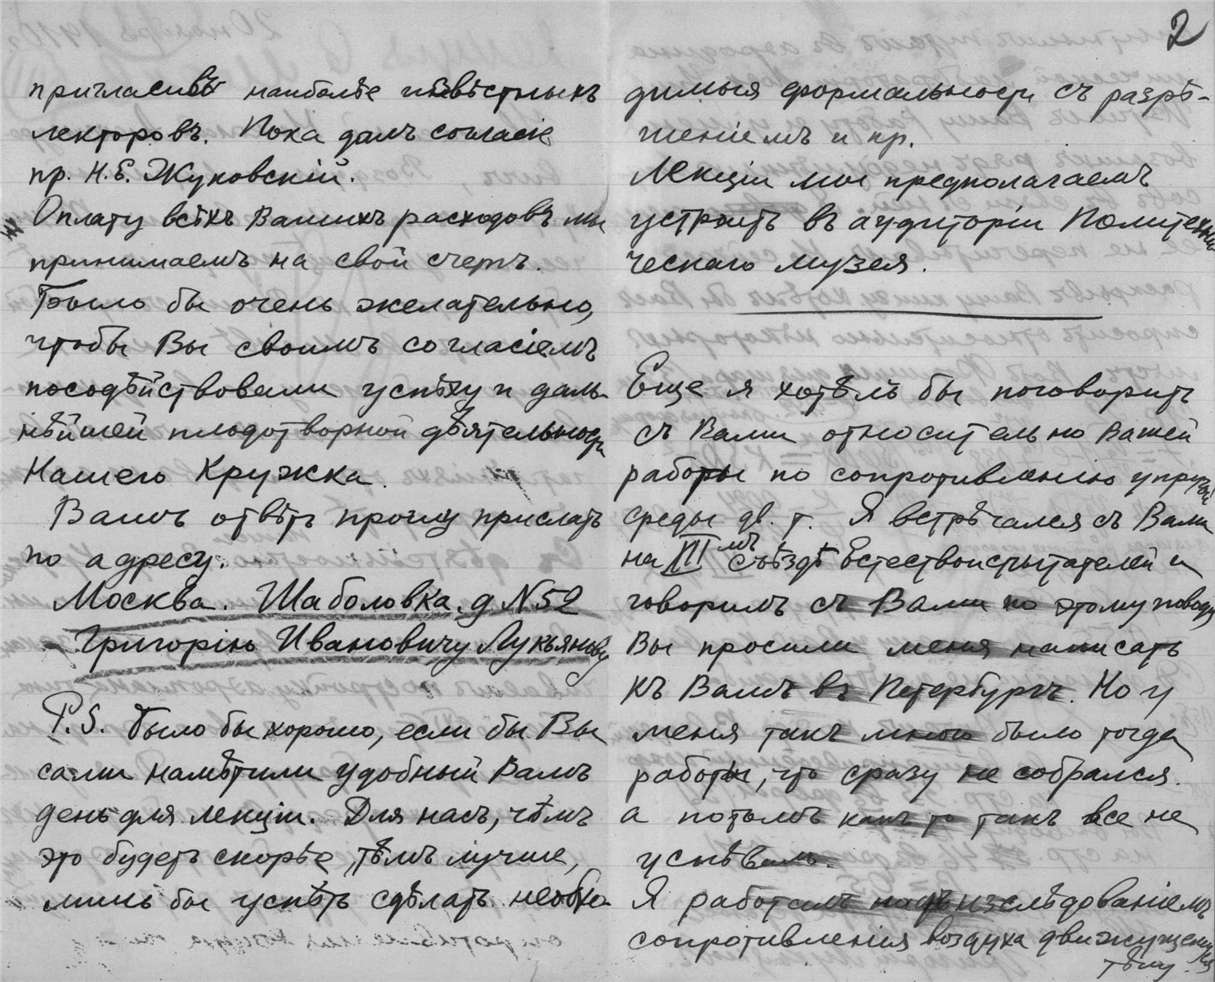 пригласивъ наиболѣе извѣстныхъ
лекторовъ. Пока далъ согласіе
пр. Н.Е. Жуковскій.
Оплату всѣхъ Вашихъ расходовъ мы
принимаемъ на свой счетъ.
Было бы очень желательно,
чтобы Вы своимъ согласіемъ
посодѣйствовали успѣху и даль-
нѣйшей плодотворной дѣятельности
Нашего Кружка.
Вашъ отвѣтъ прошу прислать
по адресу:
Москва. Шаболовка. д N52
Григорію Ивановичу Лукьянову
P.S. Было бы хорошо, если бы Вы
сами намѣтили удобный Вамъ
день для лекціи. Для насъ, чѣмъ
это будетъ скорѣе, тѣмъ лучше,
лишь бы успѣть сдѣлать необхо-
2
димыя формальности съ разрѣ-
шеніемъ и пр.
Лекціи мы предполагаемъ
устроить въ аудиторіи Политехни
ческаго музея.
Еще я хотѣлъ бы поговорить
съ Вами относительно Вашей
работы по сопротивленію упругой
среды дв. т. Я встрѣчался съ Вами
на III мъ съѣздѣ Естествоиспытателей и
говорилъ съ Вами по этому поводу
Вы просили меня написать
къ Вамъ въ Петербургъ. Но у
меня такъ много было тогда
работы, что сразу не собрался.
а потомъ какъ то такъ все не
успѣвалъ.
Я работалъ надъ изслѣдованіемъ
сопротивленія воздуха движущемуся
тѣлу.